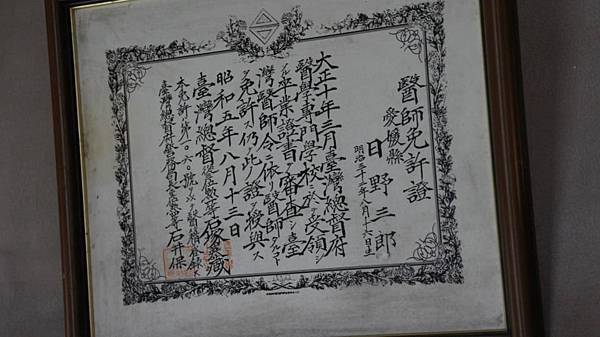 醫師免許證
愛媛縣
日野三郎
明治三十二年八月十六日生
大正十年三月臺灣總督府
醫學專門學校ニ於テ受領シ
タル卒業證書ヲ審査シ臺
灣醫師令ニ依リ醫師タルコト
ヲ免許ス仍テ此ノ證ヲ授與ス
昭和五年八月十三日
臺灣總督
本免許ハ第一〇六〇號ヲ以テ醫師
臺灣總督府警務局長
石
保